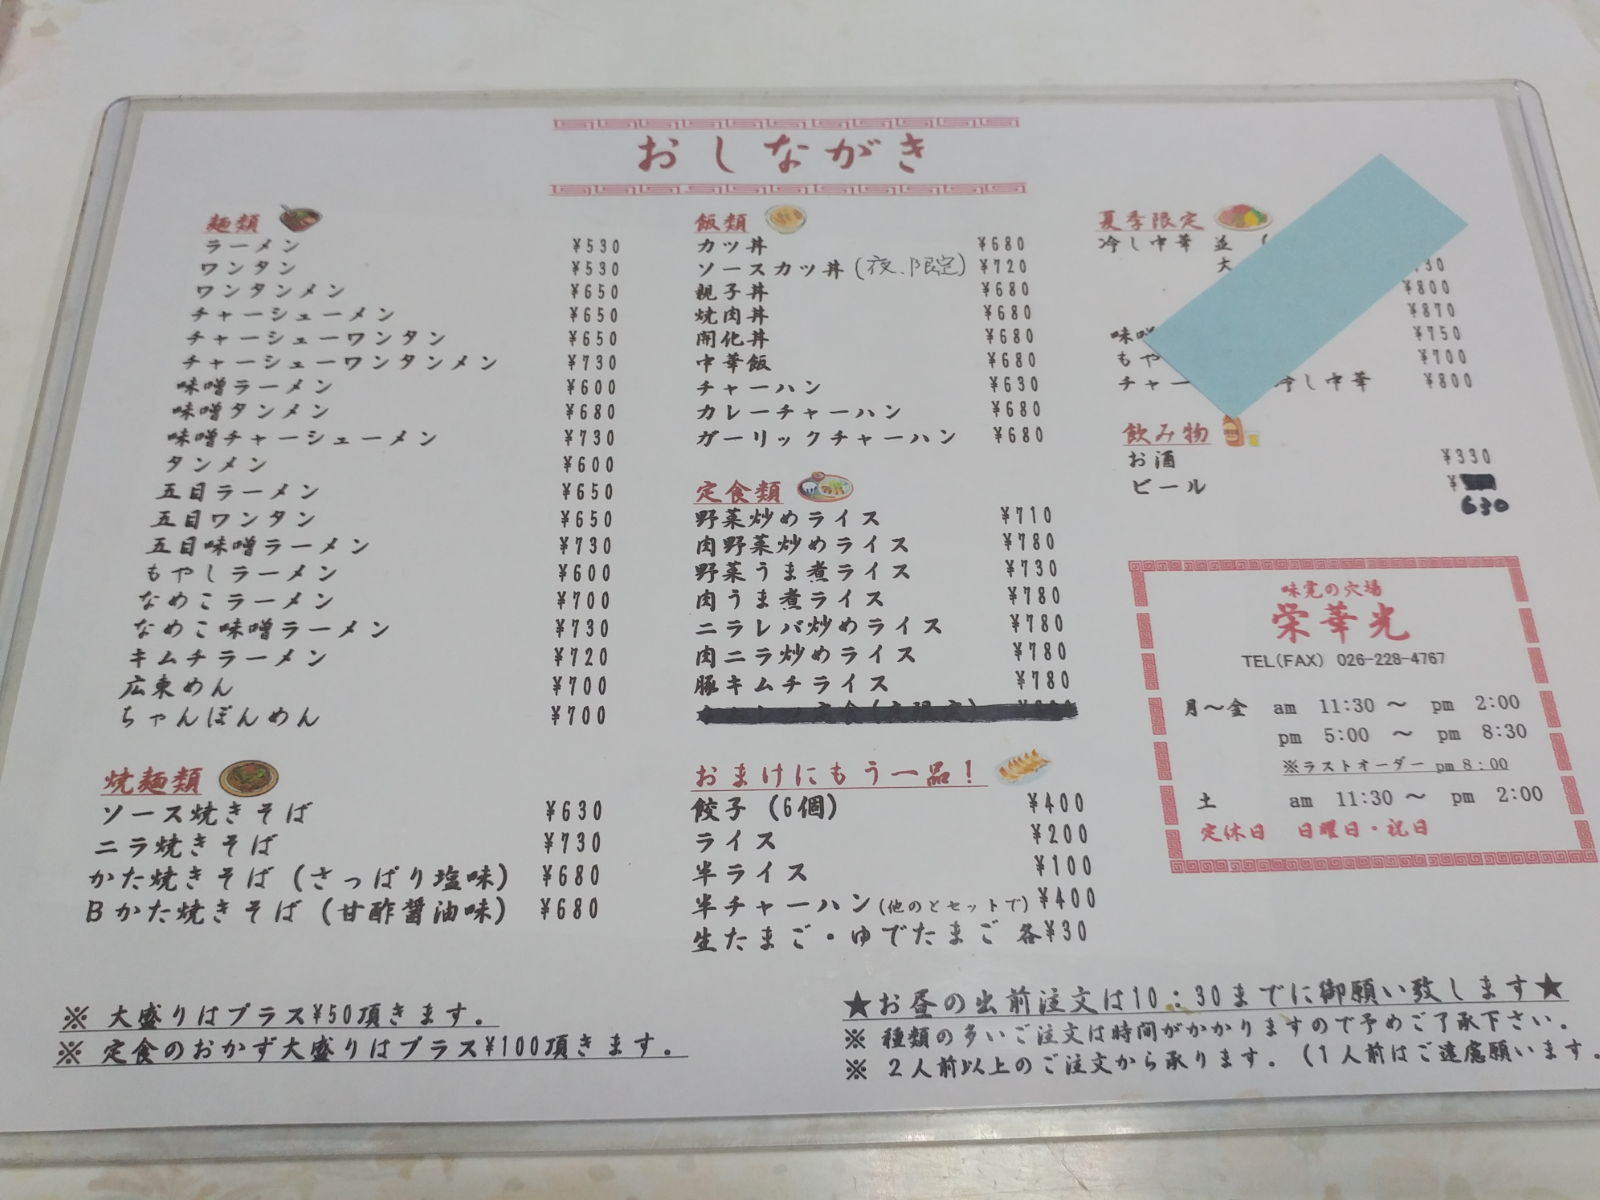 おしながき
麺類
ラーメン ¥530
ワンタン ¥530
ワンタンメン ¥650
チャーシューメン ¥650
チャーシューワンタン ¥650
チャーシューワンタンメン ¥730
味噌ラーメン ¥600
味噌タンメン ¥680
味噌チャーシューメン ¥730
タンメン ¥600
五目ラーメン ¥650
五目ワンタン ¥650
五目味噌ラーメン ¥730
もやしラーメン ¥600
なめこラーメン ¥700
なめこ味噌ラーメン ¥730
キムチラーメン ¥720
広東めん ¥700
ちゃんぽんめん ¥700
焼麺類
ソース焼きそば ¥630
ニラ焼きそば ¥730
かた焼きそば (さっぱり塩味) ¥680
Bかた焼きそば (甘酢醤油味) ¥680
※ 大盛りはプラス¥50頂きます.
※ 定食のおかず大盛りはプラス¥100頂きます.
飯類
カツ丼 ¥680
ソースカツ丼 (夜、限定) ¥720
親子丼 ¥680
焼肉丼 ¥680
開化丼 ¥680
中華飯 ¥680
チャーハン ¥630
カレーチャーハン ¥680
ガーリックチャーハン ¥680
定食類
野菜炒めライス ¥710
肉野菜炒めライス ¥780
野菜うま煮ライス ¥730
肉うま煮ライス ¥780
ニラレバ炒めライス ¥780
肉ニラ炒めライス ¥780
豚キムチライス ¥780
おまけにもう一品!
餃子 (6個) ¥400
ライス ¥200
半ライス ¥100
半チャーハン(他のとセットで) ¥400
生たまご・ゆでたまご 各¥30
夏季限定
冷し中華 並 (
大
¥800
¥870
味噌 ¥750
もや ¥700
チャー 冷し中華 ¥800
飲み物
お酒 ¥330
ビール ¥
630
味覚の穴場
栄華光
TEL(FAX) 026-228-4767
月～金 am 11:30 ～ pm 2:00
pm 5:00 ～ pm 8:30
※ラストオーダー pm 8:00
土 am 11:30 ～ pm 2:00
定休日 日曜日・祝日
★お昼の出前注文は10:30までに御願い致します★
※ 種類の多いご注文は時間がかかりますので予めご了承下さい.
※ 2人前以上のご注文から承ります. (1人前はご遠慮願います.